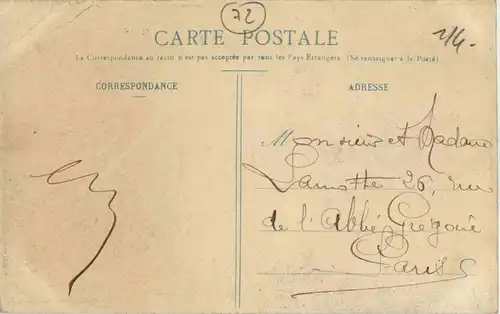 72
2/4-
CARTE POSTALE
La Correspondance au recto n'est pas acceptée par tous les Pays Etrangers. (Se renseigner à la Poste)
CORRESPONDANCE
ADRESSE
Monsieur et Madame
Lamotte 26, rue
de l'Abbé Grégoire
Paris